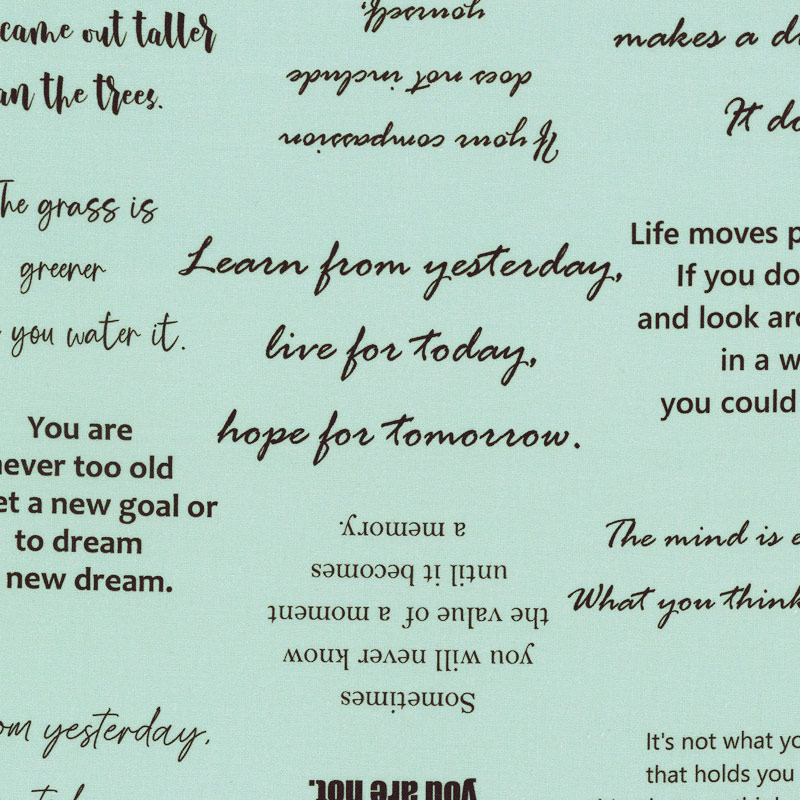 came out taller
the trees.
yourself,
does not include
If your compassion
makes a
It
The grass is
greener
you water it.
Learn from yesterday,
live for today,
hope for tomorrow.
Life moves
If you
and look
in a
you could
You are
never too old
a new goal or
to dream
new dream.
Sometimes
you will never know
the value of a moment
until it becomes
a memory.
The mind is
What you think
yesterday,
you are not.
It's not what
that holds you